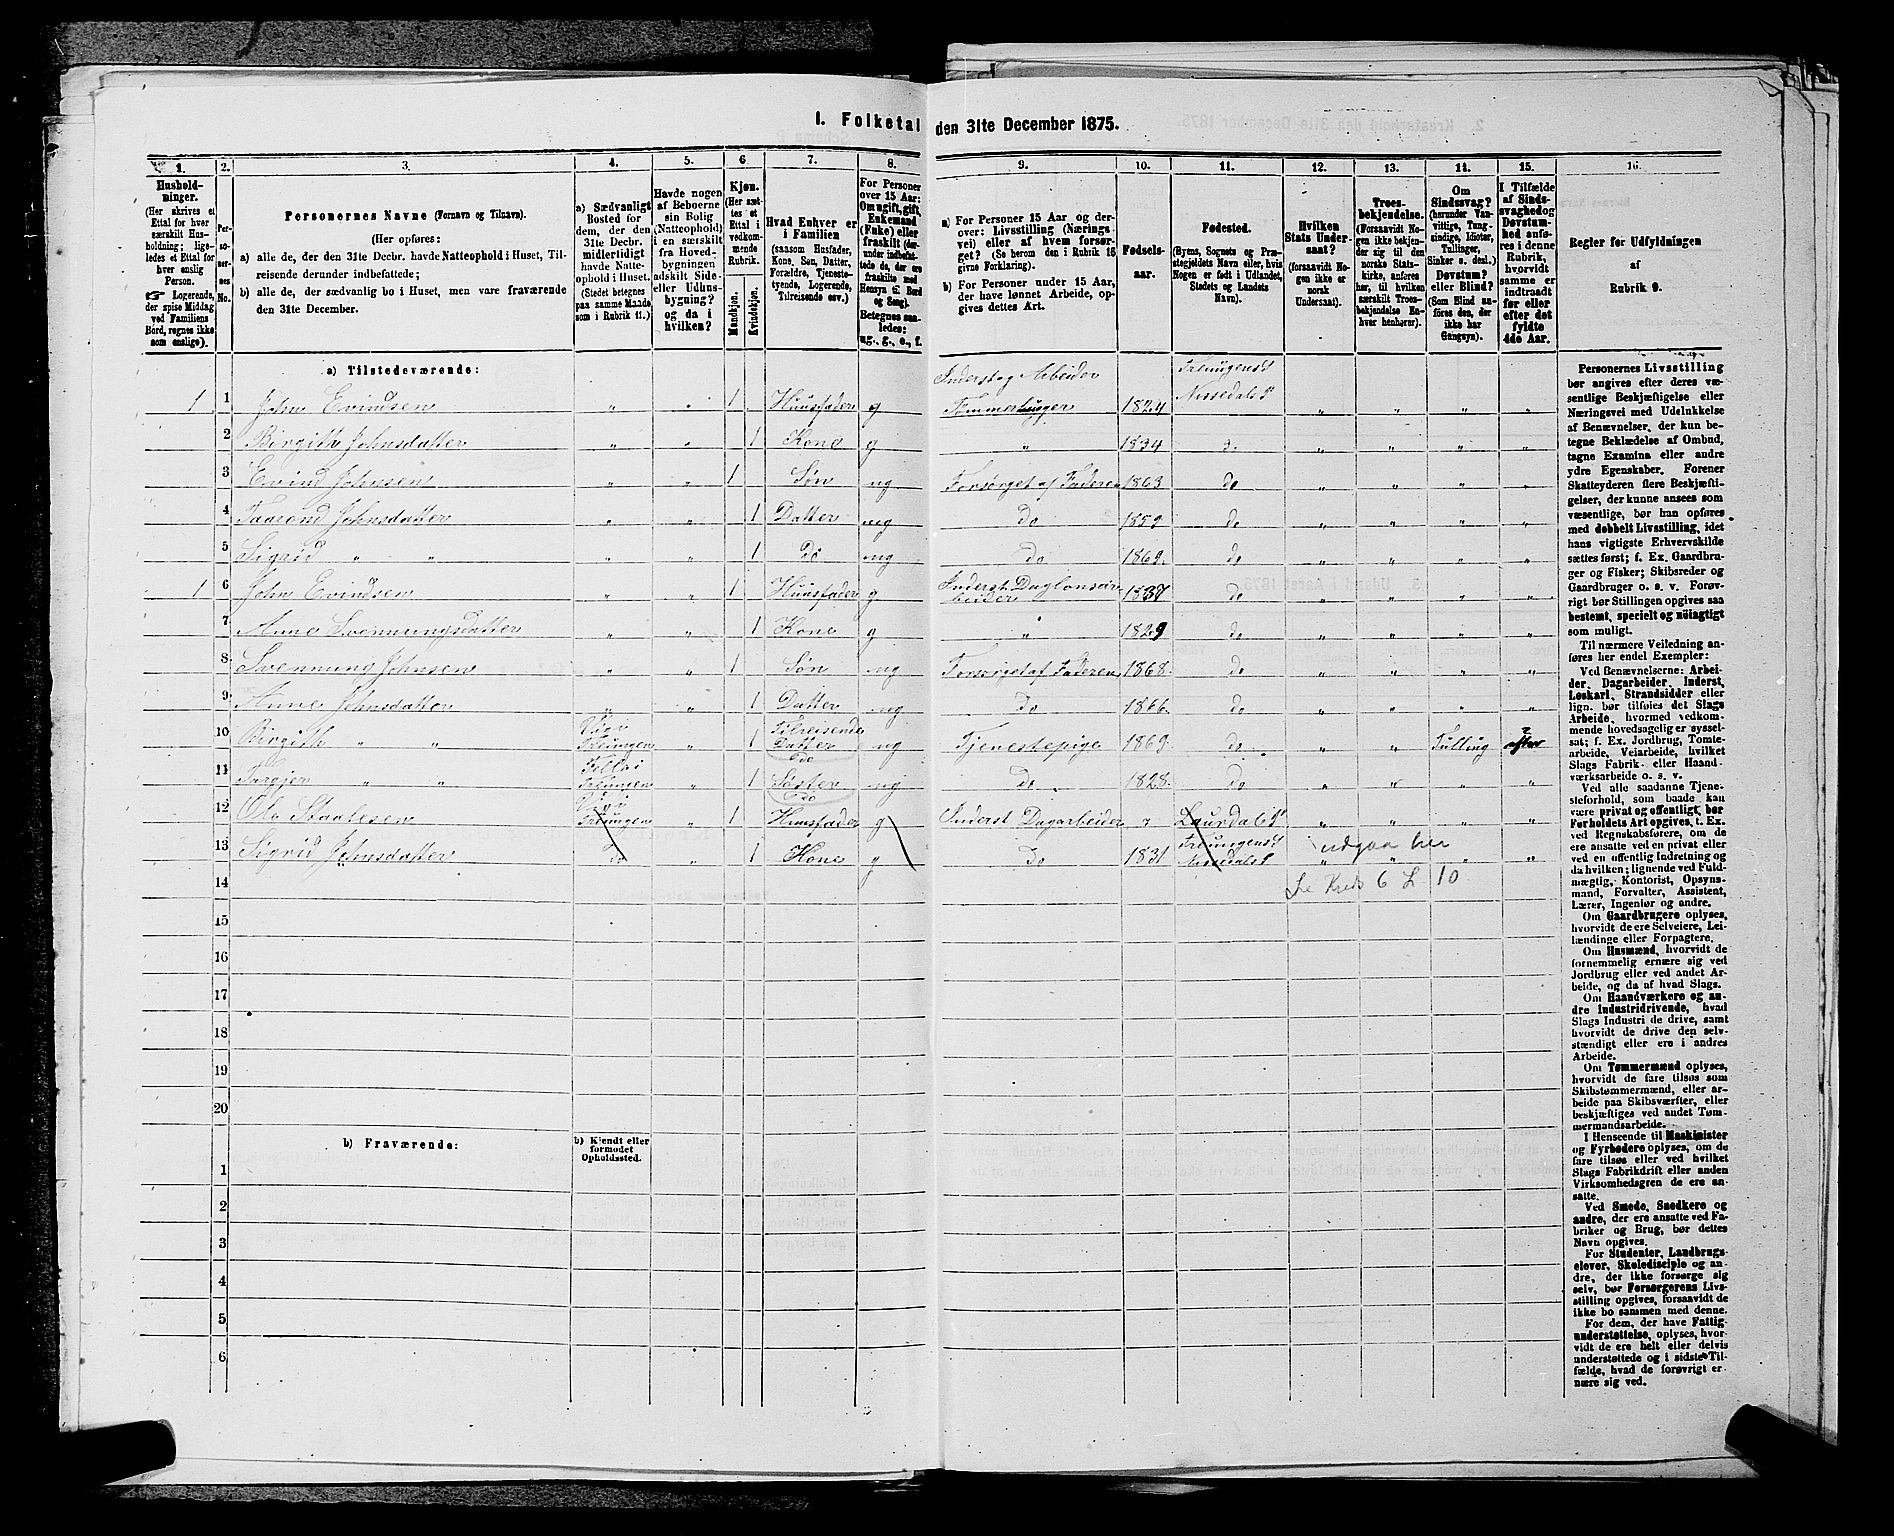 1. Folketal den 31te December 1875.
1. 2. 3. 4. 5. 6 7. 8. 9. 10. 11. 12. 13. 14. 15. 16.
Hushold-
ninger.
(Her skrives et
Ettal for hver
særskilt Hus-
holdning; lige-
ledes et Ettal for
hver enslig
Person.
☞ Logerende,
der spise Middag
ved Familiens
Bord, regnes ikke
som enslige).
Per-
so-
ner-
nes
No.
Personernes Navne (Fornavn og Tilnavn).
(Her opføres:
a) alle de, der den 31te Decbr. havde Natteophold i Huset, Til-
reisende derunder indbefattede;
b) alle de, der sædvanlig bo i Huset, men vare fraværende
den 31te December.
a) Sædvanligt
Bosted for
dem, der den
31te Decbr.
midlertidigt
havde Natte-
ophold i Huset.
(Stedet betegnes
paa samme Maade,
som i Rubrik 11.)
Havde nogen
af Beboerne
sin Bolig
(Natteophold)
i en særskilt
fra Hoved-
bygningen
adskilt Side-
eller Udhus-
bygning?
og da i
hvilken?
Kjøn.
(Her sæt-
tes et
Ettal i
vedkom-
mende
Rubrik.
Mandkjøn.
Kvindekjøn.
Hvad Enhver er
i Familien
(saasom Husfader,
Kone, Søn, Datter,
Forældre, Tjeneste-
tyende, Logerende,
Tilreisende osv.)
For Personer
over 15 Aar:
Om ugift, gift,
Enkemand
(Enke) eller
fraskilt (der-
under indbefat-
tede de, der ere
fraskilte med
Hensyn til Bord
og Seng).
Betegnes saa-
ledes:
ug., g., e., f.
a) For Personer 15 Aar og der-
over: Livsstilling (Nærings-
vei) eller af hvem forsør-
get? (Se herom den i Rubrik 16
givne Forklaring).
b) For Personer under 15 Aar,
der have lønnet Arbeide, op-
gives dettes Art.
Fødsels-
aar.
Fødested.
(Byens, Sognets og Præ-
stegjeldets Navn eller, hvis
Nogen er født i Udlandet,
Stedets og Landets
Navn).
Hvilken
Stats Under-
saat?
(forsaavidt No-
gen ikke er
norsk
Undersaat).
Troes-
bekjendelse.
(Forsaavidt No-
gen ikke bekjen-
der sig til den
norske Stats-
kirke, anføres
her, til hvilken
særskilt Troes-
bekjendelse En-
hver henhører).
Om
Sindssvag?
(herunder Van-
vittige, Tung-
sindige, Idioter,
Tullinger,
Sinker o. desl.)
Døvstum?
eller Blind?
(Som Blind an-
føres den, der
ikke har
Gangsyn).
I Tilfælde
af Sinds-
svaghed og
Døvstum-
hed anfø-
res i denne
Rubrik,
hvorvidt
samme er
indtraadt
før eller
efter det
fyldte
4de Aar.
Regler for Udfyldningen
af
Rubrik 9.
a) Tilstedeværende:
1 1 John Evindsen " " 1 Huusfader g Inderst og Arbeider Tømmerhugger 1824 Treungens S Nissedals P " " " "
2 Birgith Johnsdatter " " 1 Kone g " 1834 do " " " "
3 Evind Johnsen " " 1 Søn ug Forsørget af Faderen 1863 do " " " "
4 Taarond Johnsdatter " " 1 Datter ug Do 1859 do " " " "
5 Sigrid " " " " 1 Do ug do 1869. do " " " "
1 6 John Evindsen " " 1 Huusfader g Inderst Daglønsar-beider 1837 do " " " "
7 Anne Svennungsdatter " " 1 Kone g " 1829 do " " " "
8. Svennung Johnsen " " 1 Søn ug Forsørget af Faderen 1868. do " " " "
9. Anne Johnsdatter " " 1 Datter ug do 1866. do " " " "
10 Birgith " " Treungen " 1 Tilreisende Datter ug Tjenestepige 1869. do " " Tulling efter
11 Torgjer " " Treungen " 1 do Søster ug Do 1828. Do " " " "
12 Ole Staalesen Treungen " 1 do Huusfader g Inderst Dagarbeider " Laurdals P " " " "
13 Sigrid Johnsdatter Do " 1 Kone g Do 1831 Treungens S Nissedals P " " " "
udgaa her
Se Kreds 6 L. 10
14
15
16
17
18
19
20
b) Fraværende:
b) Kjendt eller
formodet
Opholdssted.
1
2
3
4
5
6
Personernes Livsstilling
bør angives efter deres væ-
sentlige Beskjæftigelse eller
Næringsvei med Udelukkelse
af Benævnelser, der kun be-
tegne Beklædelse af Ombud,
tagne Examina eller andre
ydre Egenskaber. Forener
Skatteyderen flere Beskjæfti-
gelser, der kunne ansees som
væsentlige, bør han opføres
med dobbelt Livsstilling, idet
hans vigtigste Erhvervskilde
sættes først; f. Ex. Gaardbru-
ger og Fisker; Skibsreder og
Gaardbruger o. s. v. Forøv-
rigt bør Stillingen opgives saa
bestemt, specielt og nøiagtigt
som muligt.
Til nærmere Veiledning an-
føres her endel Exempler:
Ved Benævnelserne: Arbei-
der, Dagarbeider, Inderst,
Løskarl, Strandsidder eller
lign. bør tilføies det Slags
Arbeide, hvormed vedkom-
mende hovedsagelig er syssel-
sat; f. Ex. Jordbrug, Tomte-
arbeide, Veiarbeide, hvilket
Slags Fabrik- eller Haand-
værksarbeide o. s. v.
Ved alle saadanne Tjene-
steforhold, som baade kan
være privat og offentligt, bør
Forholdets Art opgives, t. Ex.
ved Regnskabsførere, om de
ere ansatte ved en privat eller
ved en offentlig Indretning og
da hvilken; lignende ved Fuld-
mægtig, Kontorist, Opsyns-
mand, Forvalter, Assistent,
Lærer, Ingeniør og andre.
Om Gaardbrugere oplyses,
hvorvidt de ere Selveiere, Lei-
lændinge eller Forpagtere.
Om Husmænd, hvorvidt de
fornemmelig ernære sig ved
Jordbrug eller ved andet Ar-
beide, og da af hvad Slags.
Om Haandværkere og an-
dre Industridrivende, hvad
Slags Industri de drive, samt
hvorvidt de drive den selv-
stændigt eller ere i andres
Arbeide.
Om Tømmermænd oplyses,
hvorvidt de fare tilsøs som
Skibstømmermænd, eller ar-
beide paa Skibsværfter, eller
beskjæftiges ved andet Tøm-
mermandsarbeide.
I Henseende til Maskinister
og Fyrbødere oplyses, om de
fare tilsøs eller ved hvilket
Slags Fabrikdrift eller anden
Virksomhedsgren de ere an-
satte.
Ved Smede, Snedkere og
andre, der ere ansatte ved Fa-
briker og Brug, bør dettes
Navn opgives.
For Studenter, Landbrugs-
elever, Skoledisciple og an-
dre, der ikke forsørge sig
selv, bør Forsørgerens Livs-
stilling opgives, forsaavidt de
ikke bo sammen med denne.
For dem, der have Fattig-
understøttelse, oplyses, hvor-
vidt de ere helt eller delvis
understøttede og i sidste Til-
fælde, hvad de forøvrigt er-
nære sig ved.